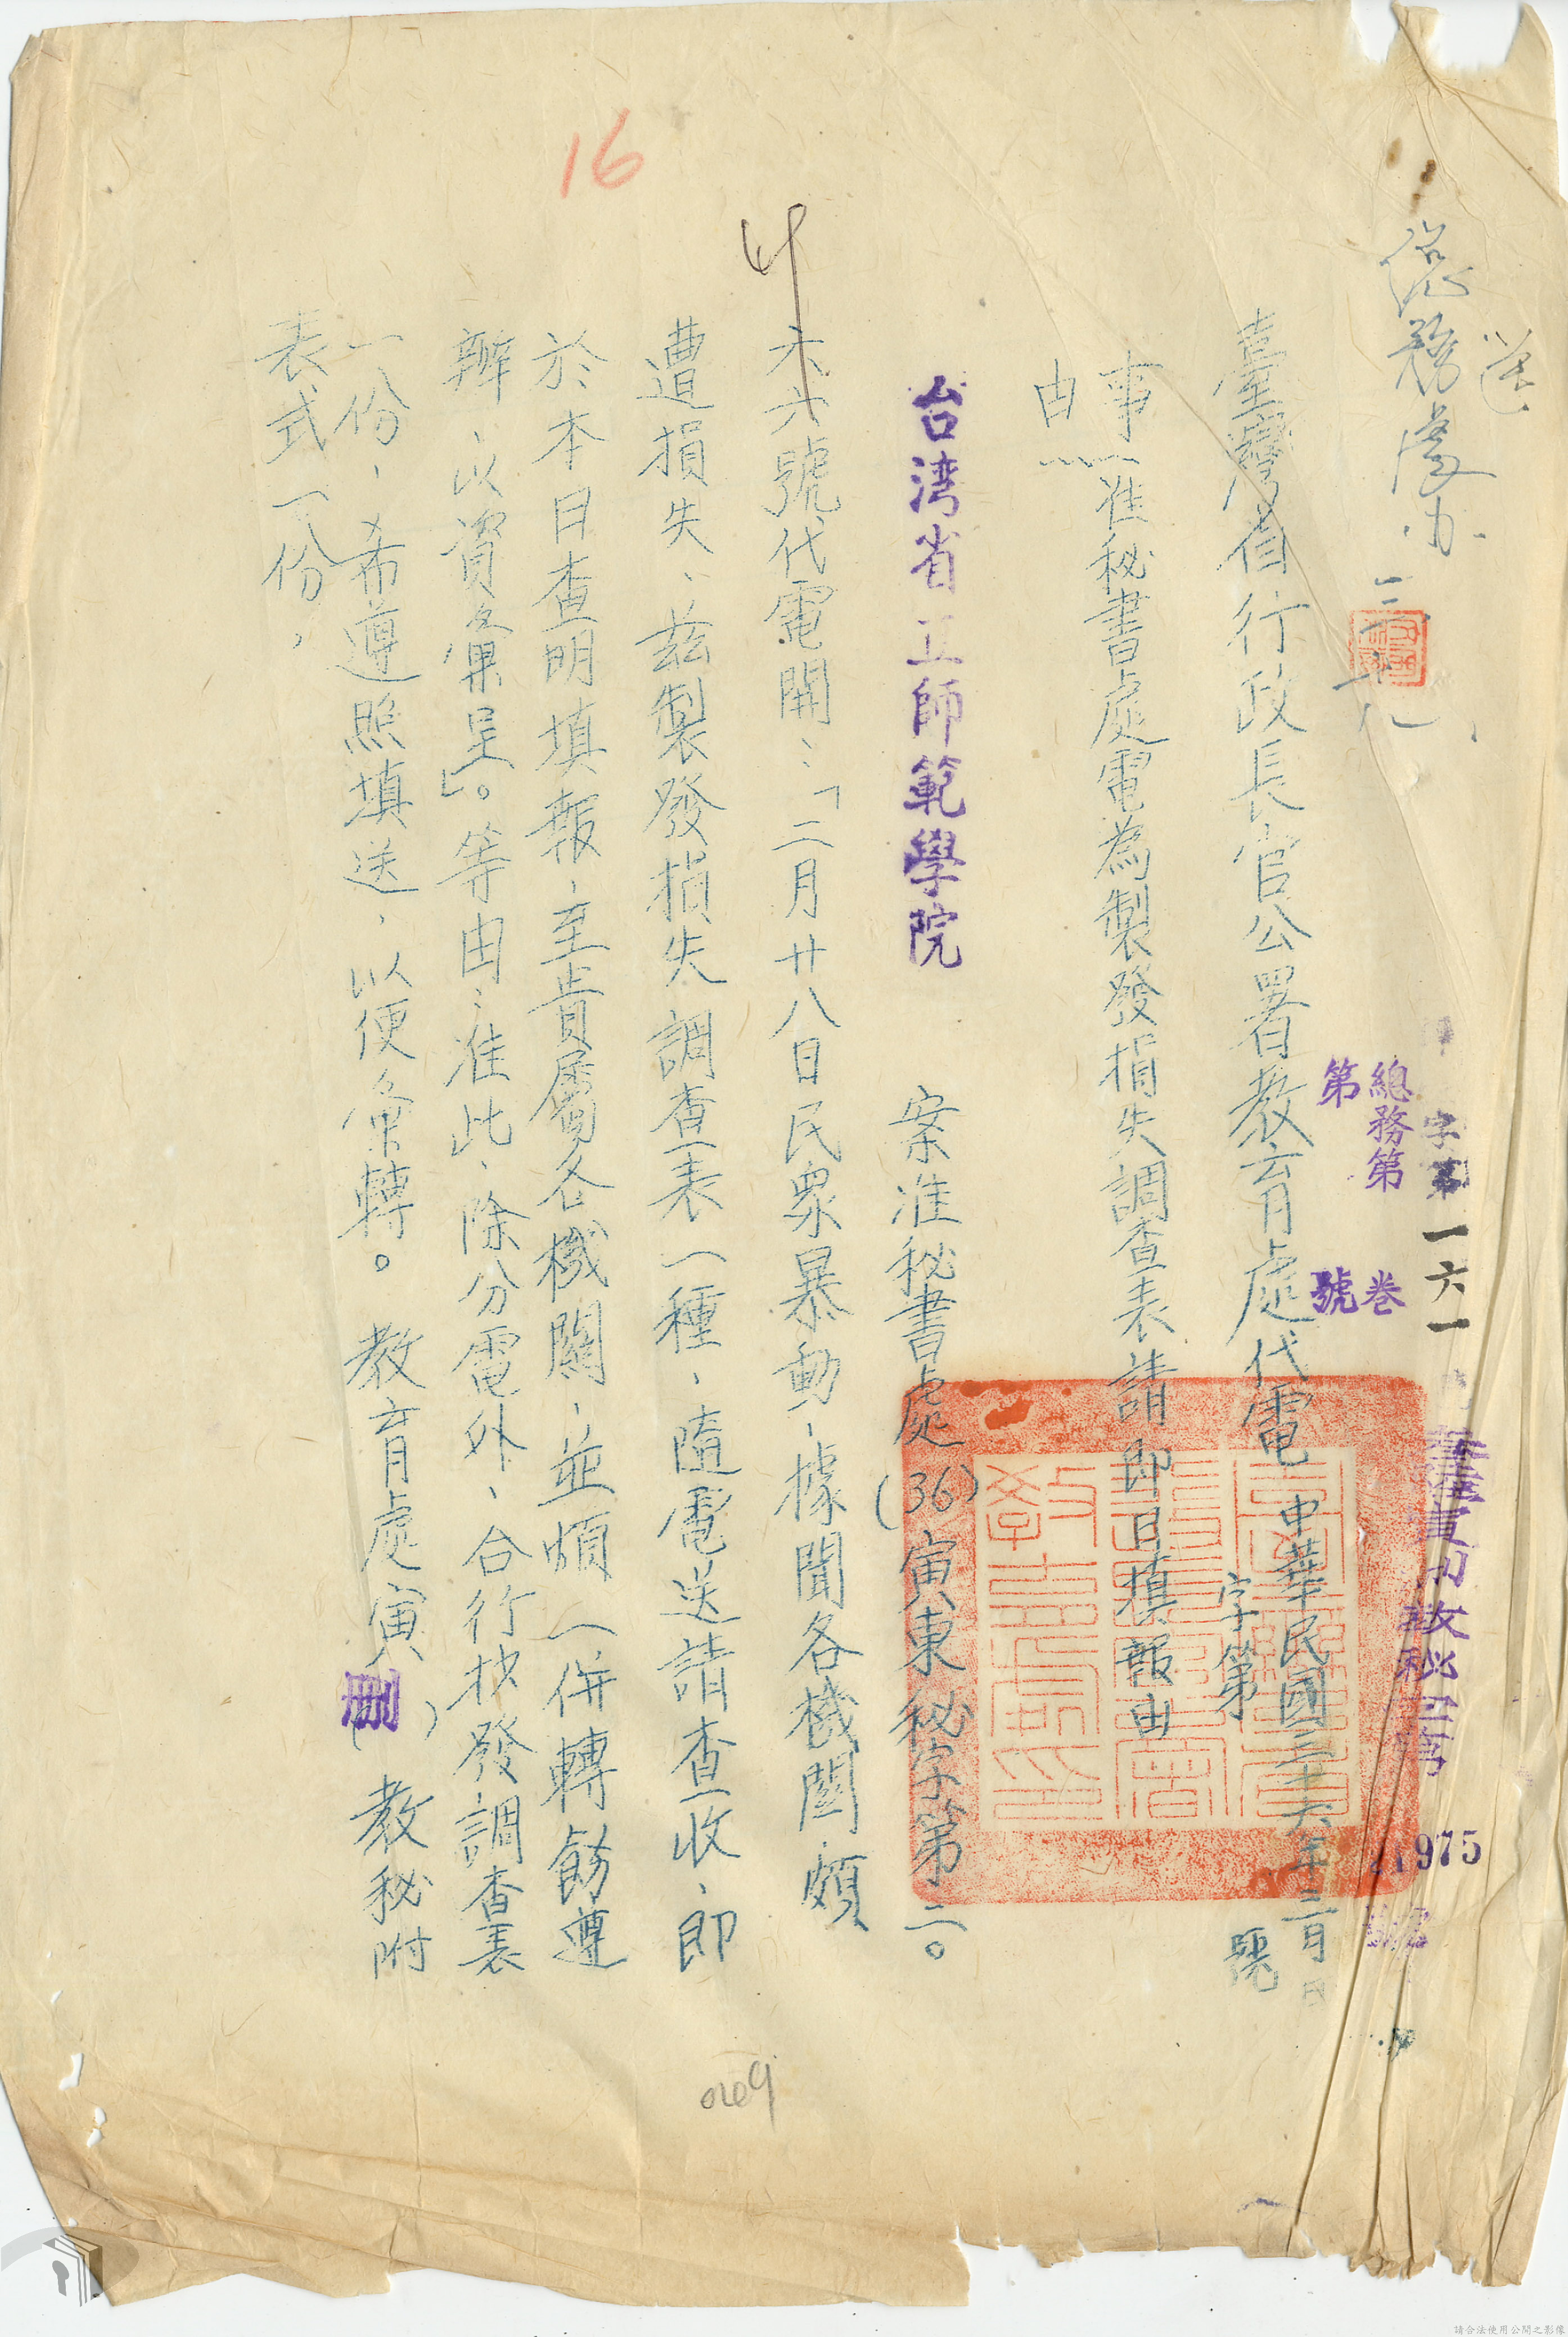 送
總務處办 三、廿八
字第一六一
總務第 卷
第 號
975
臺灣省行政長官公署教育處代電 中華民國三十六年三月 日
字第 號
事由：准秘書處電為製發損失調查表請即日填報由
台湾省立師範學院 案准秘書處(36)寅東秘字第二○
六六號代電開：「二月廿八日民眾暴動，據聞各機關，頗
遭損失、茲製發損失調查表一種，隨電送請查收、即
於本日查明填報，至貴屬各機關，並煩一併轉飭遵
辦、以資彙呈」。等由；准此、除分電外、合行抄發調查表
一份，希遵照填送，以便彙轉。教育處寅（ ）教秘附
表式一份，
16
教育處印
請合法使用公開之影像